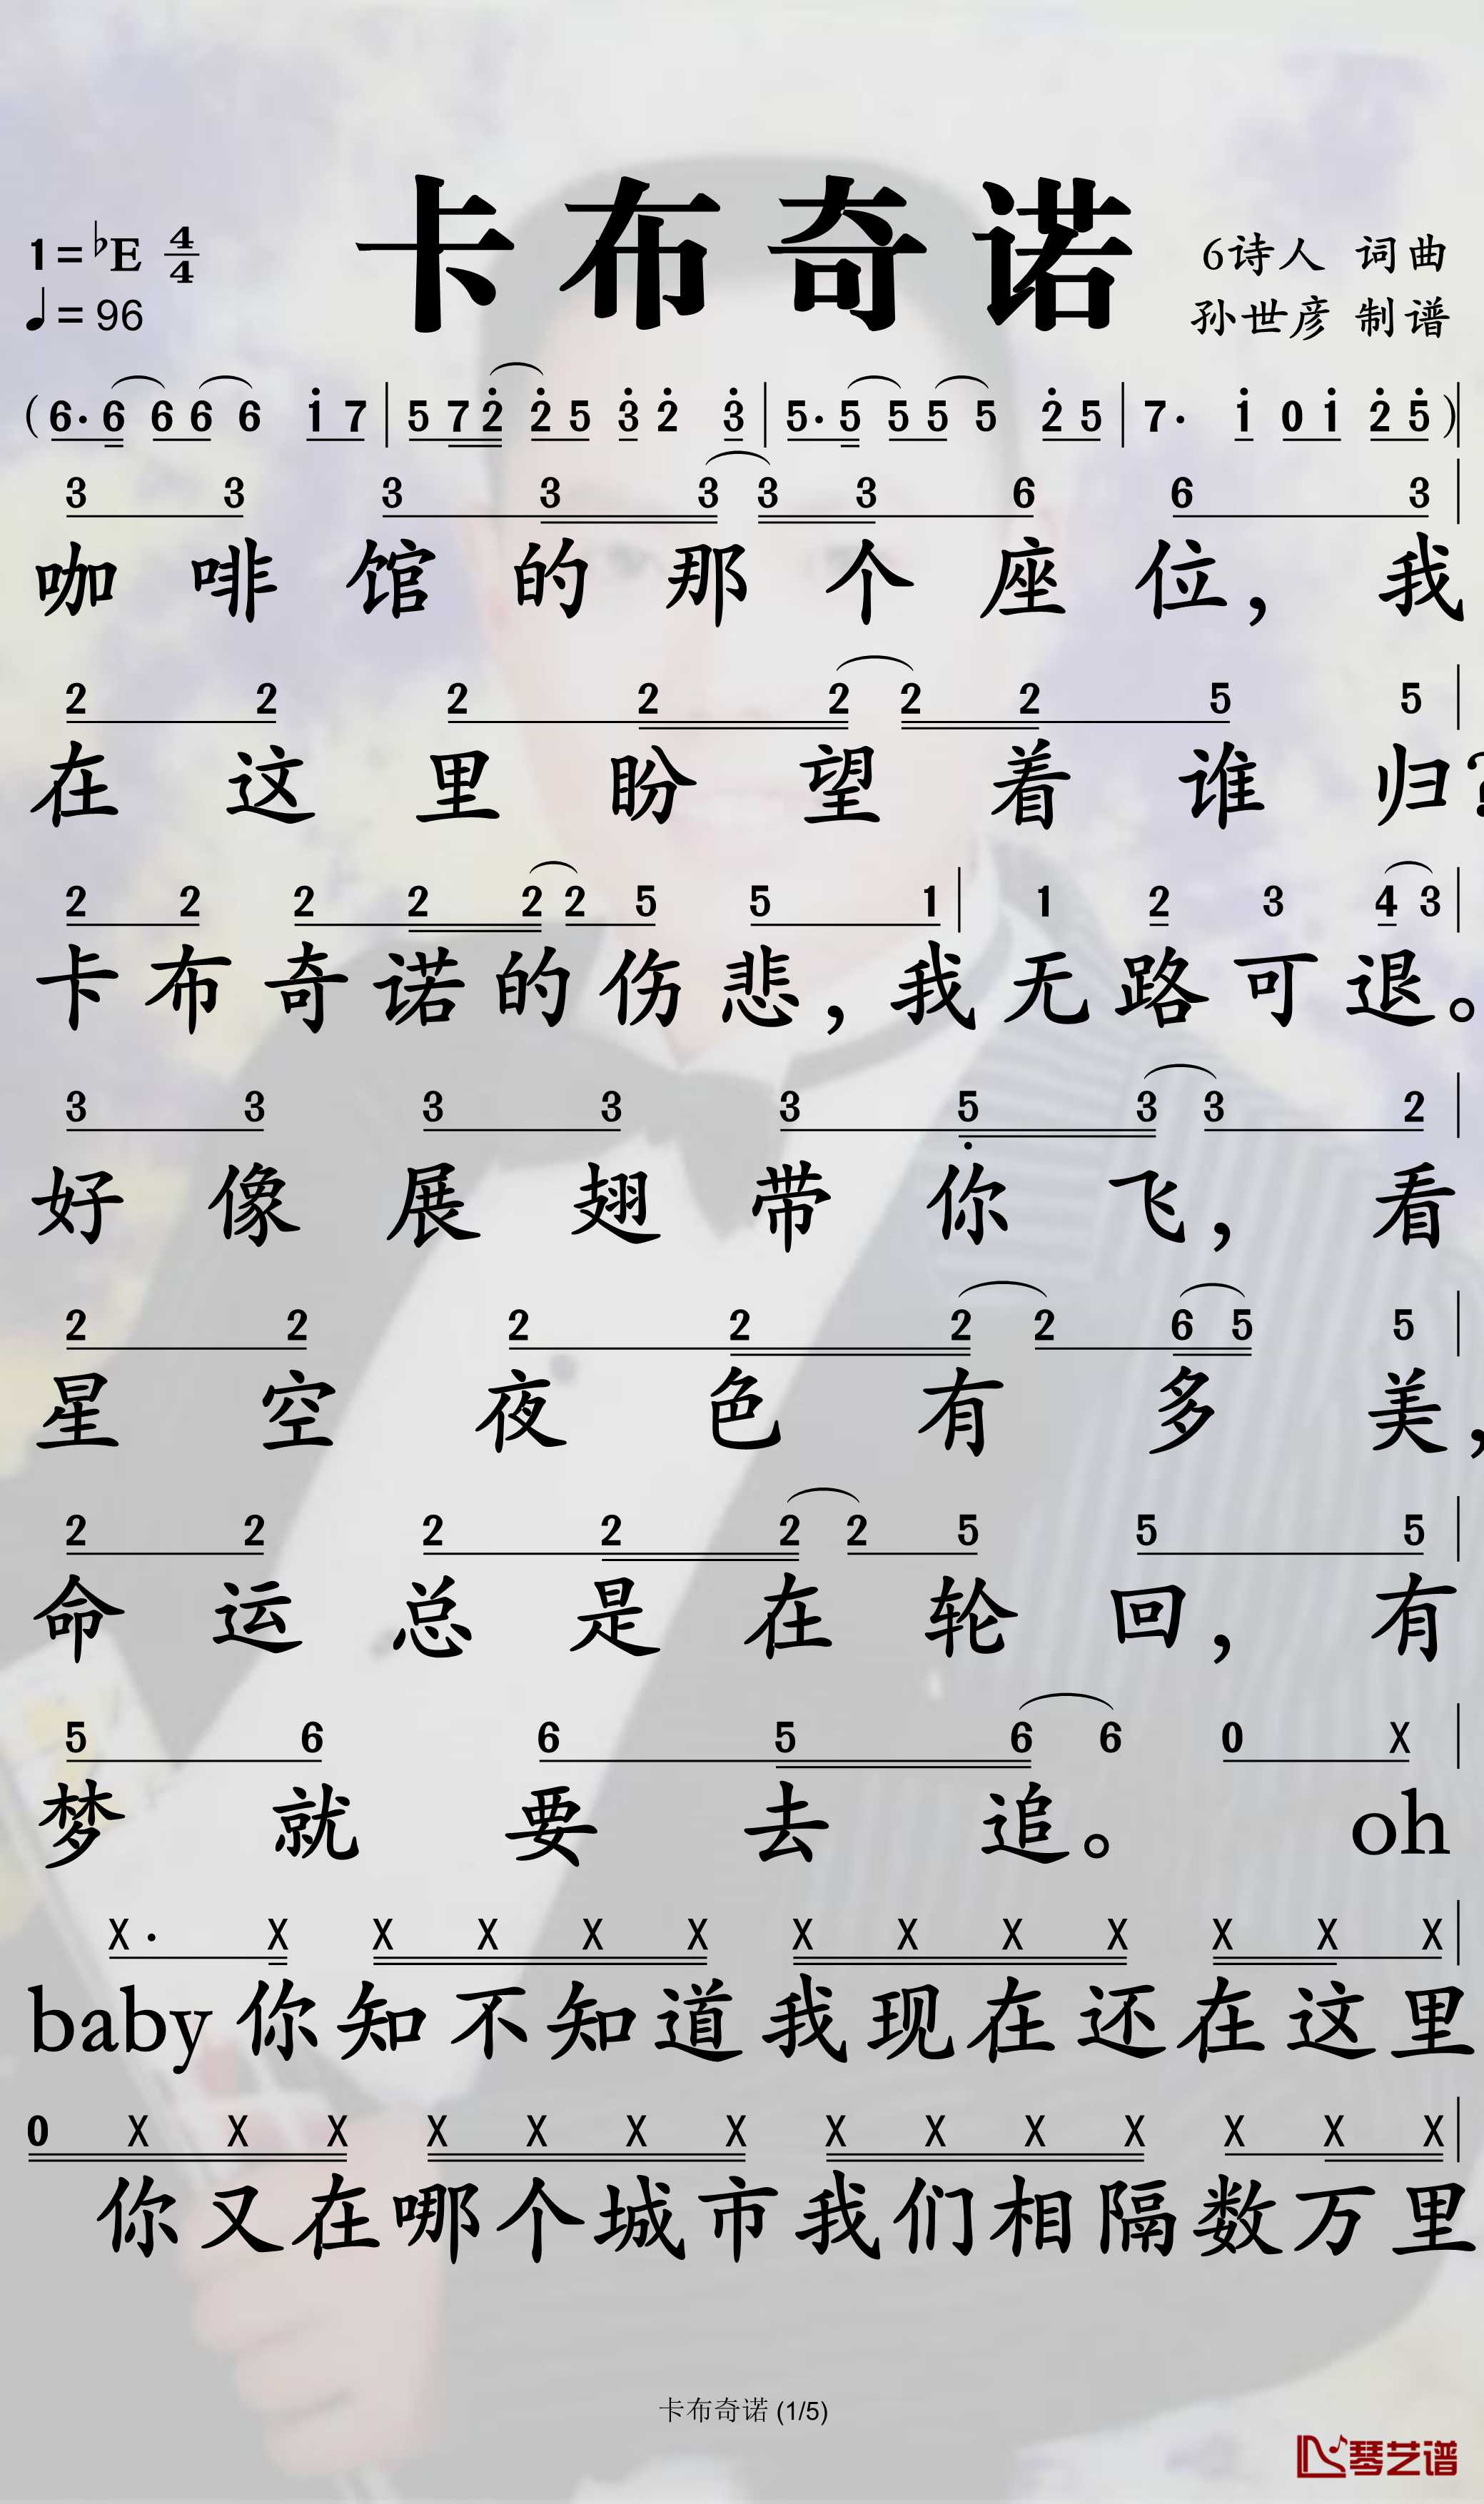 卡布奇诺
1=♭E 4/4
♩=96
6诗人 词曲
孙世彦 制谱
(6·6 6 6 6 i 7 | 5 7 2̇ 2̇ 5 3̇ 2̇ 3̇ | 5·5 5 5 5 2̇ 5 | 7· i 0 i 2̇ 5̇)|
3 3 3 3 3 3 3 6 6 3 |
咖啡馆的那个座位，我
2 2 2 2 2 2 2 5 5 |
在这里盼望着谁归？
2 2 2 2 2 2 5 5 1 | 1 2 3 4 3 |
卡布奇诺的伤悲，我无路可退。
3 3 3 3 3 5̣ 3 3 2 |
好像展翅带你飞，看
2 2 2 2 2 2 6 5 5 |
星空夜色有多美，
2 2 2 2 2 2 5 5 5 |
命运总是在轮回，有
5 6 6 5 6 6 0 X |
梦就要去追。 oh
X· X X X X X X X X X X X X |
baby 你知不知道我现在还在这里
0 X X X X X X X X X X X X X X |
你又在哪个城市我们相隔数万里
卡布奇诺 (1/5)
琴艺谱